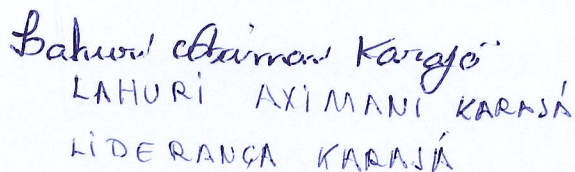 Lahuri Karajá
LAHURI AXIMANI KARAJÁ
LIDERANÇA KARAJÁ